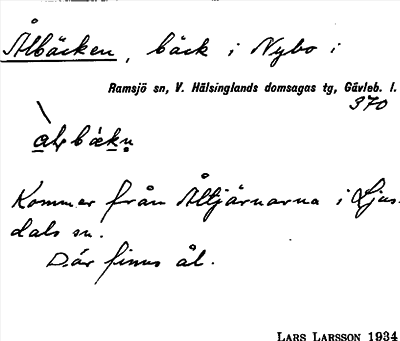 Ålbäcken, bäck i Nybo i
Ramsjö sn, V. Hälsinglands domsagas tg, Gävleb. l.
370
Kommer från Åltjärnarna i Ljus-
dals sn.
Där finns ål.
LARS LARSSON 1934